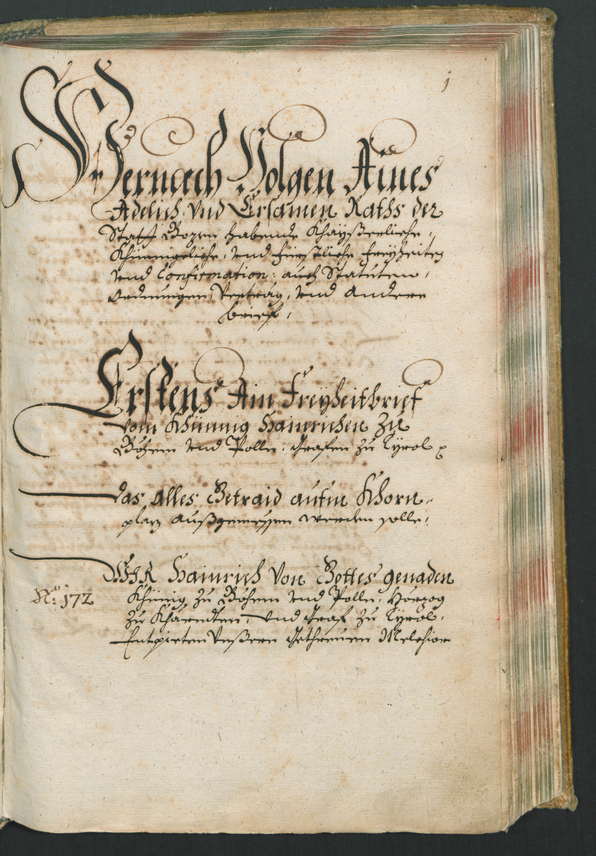 1
Hernach Volgen Aines
Adelich Vnd Ersamen Raths der
Statt Bozen habende Khaÿßerliche,
Khünngeliche, vnd Fürstliche freÿheiten
vnd Confirmation: auch Statuten,
Ordnungen, Verträg, vnd Andere
brief,
Erstens Ain Freÿheitbrief
vom Khünnig Hainrichen Zu
Böhem vnd Polln: Grafen zu Tÿrol
Das Alles Betraid aufm Khorn-
plaz Außgemessen werden solle,
WIR Hainrich Von Gottes genaden
No: 172
Khünig zu Böhem vnd Polln: Hörzog
zu Kharndten, Vnd Graf zu Tÿrol,
Entpieten Vnßern Gethreuen Melchior